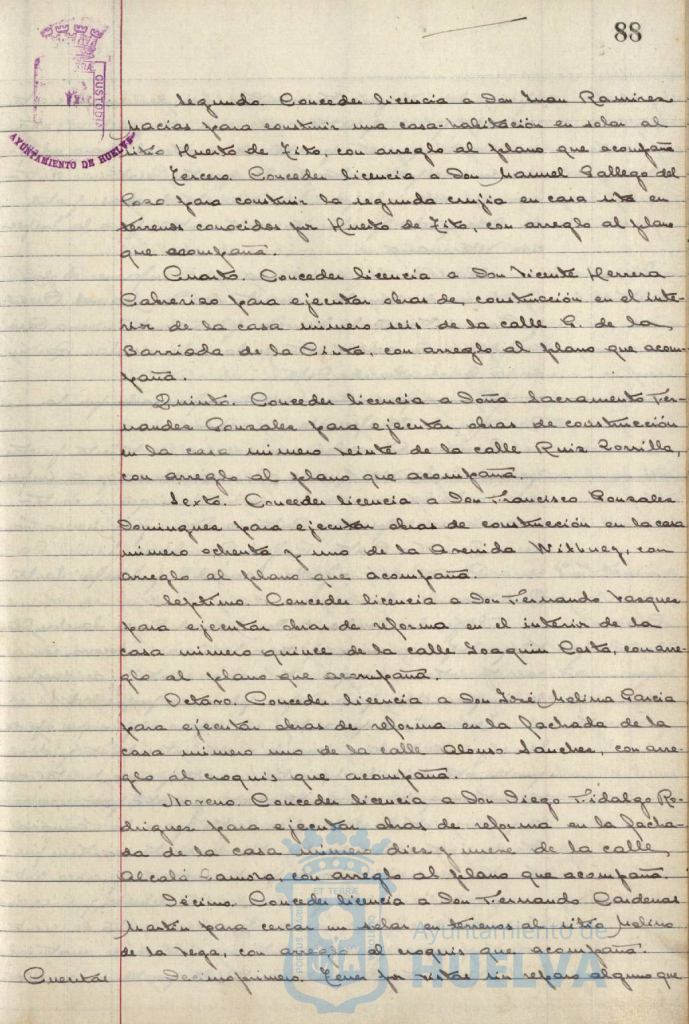 88
CUSTODIA
AYUNTAMIENTO DE HUELVA
Segundo. Conceder licencia a Don Juan Ramirez
Macias para construir una casa-habitación en solar al
sitio Huerto de Zito, con arreglo al plano que acompaña
Tercero. Conceder licencia a Don Manuel Gallego del
Pozo para construir la segunda crujia en casa sita en
terrenos conocidos por Huerto de Zito, con arreglo al plano
que acompaña.
Cuarto. Conceder licencia a Don Vicente Herrera
Cabrerizo para ejecutar obras de construcción en el inte-
rior de la casa número seis de la calle G. de la
Barriada de la Cinta, con arreglo al plano que acom-
paña.
Quinto. Conceder licencia a Doña Sacramento Fer-
nandez Gonzalez para ejecutar obras de construcción
en la casa número veinte de la calle Ruiz Zorrilla,
con arreglo al plano que acompaña.
Sexto. Conceder licencia a Don Francisco Gonzalez
Dominguez para ejecutar obras de construcción en la casa
número ochenta y uno de la Avenida con
arreglo al plano que acompaña.
Septimo. Conceder licencia a Don Fernando Vazquez
para ejecutar obras de reforma en el interior de la
casa número quince de la calle Joaquin Costa, con arre-
glo al plano que acompaña.
Octavo. Conceder licencia a Don José Molina Garcia
para ejecutar obras de reforma en la fachada de la
casa número uno de la calle Alonso Sanchez, con arre-
glo al croquis que acompaña.
Noveno. Conceder licencia a Don Diego Fidalgo Ro-
driguez para ejecutar obras de reforma en la facha-
da de la casa número diez y nueve de la calle
Alcalá Zamora, con arreglo al plano que acompaña
Décimo. Conceder licencia a Don Fernando Cardenas
Martín para cercar un solar en terrenos al sitio Molino
de la Vega, con arreglo al croquis que acompaña.
Cuentas Decimoprimero. Tener por vistas sin reparo alguno que
Ayuntamiento de
HUELVA